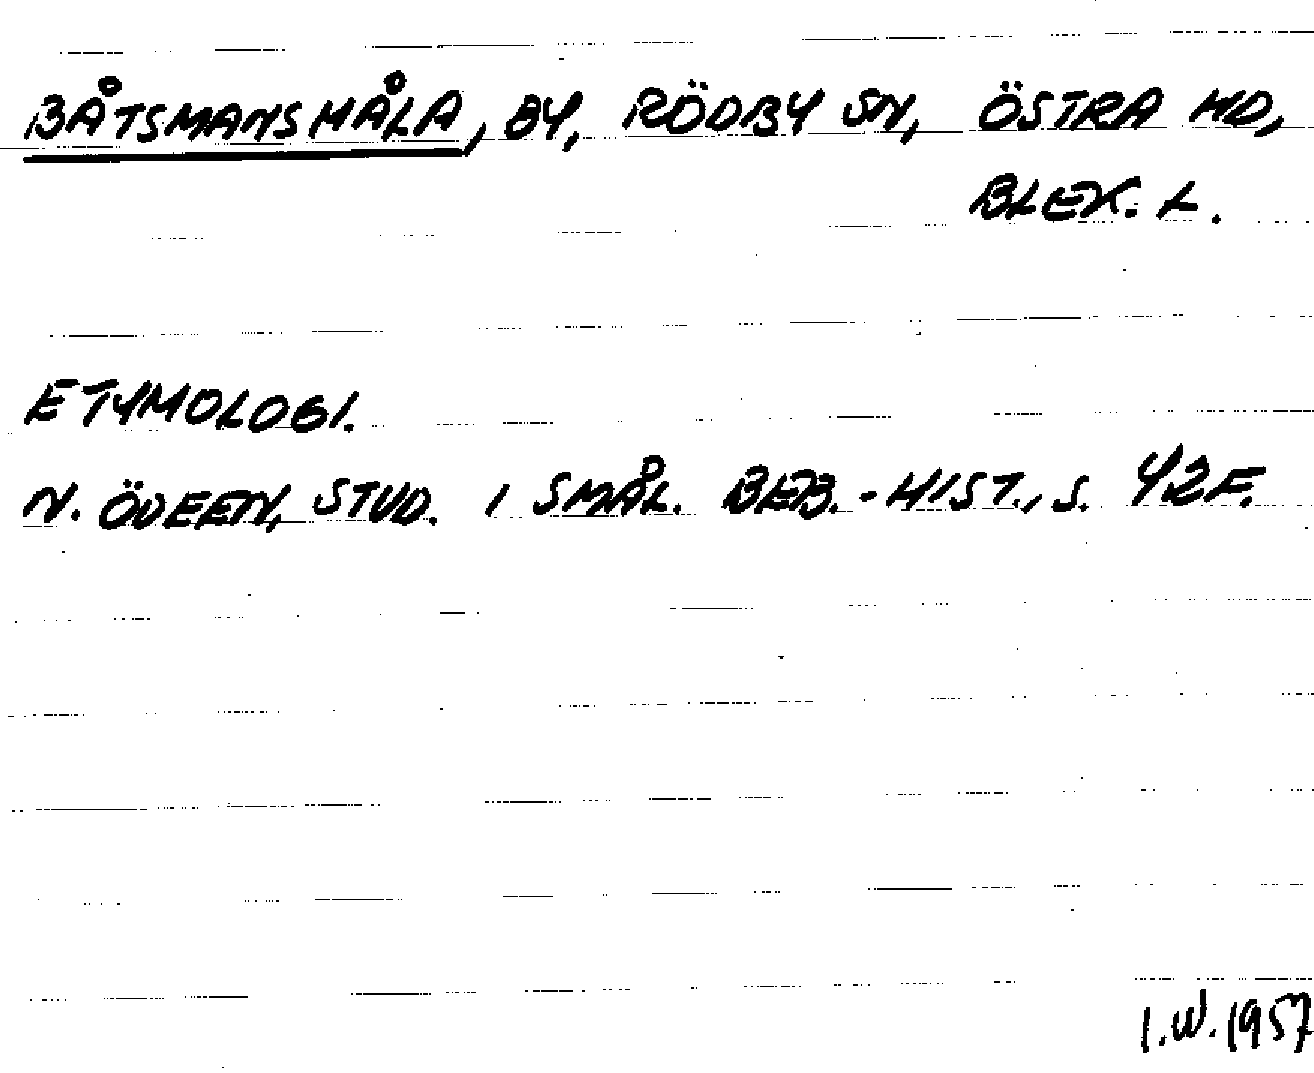 BÅTSMANSMÅLA, BY, RÖDBY SN, ÖSTRA HD,
BLEK. L.
ETYMOLOGI.
N. ÖDEEN, STUD. I SMÅL. BEB.-HIST., S. 42F.
I.W. 1957